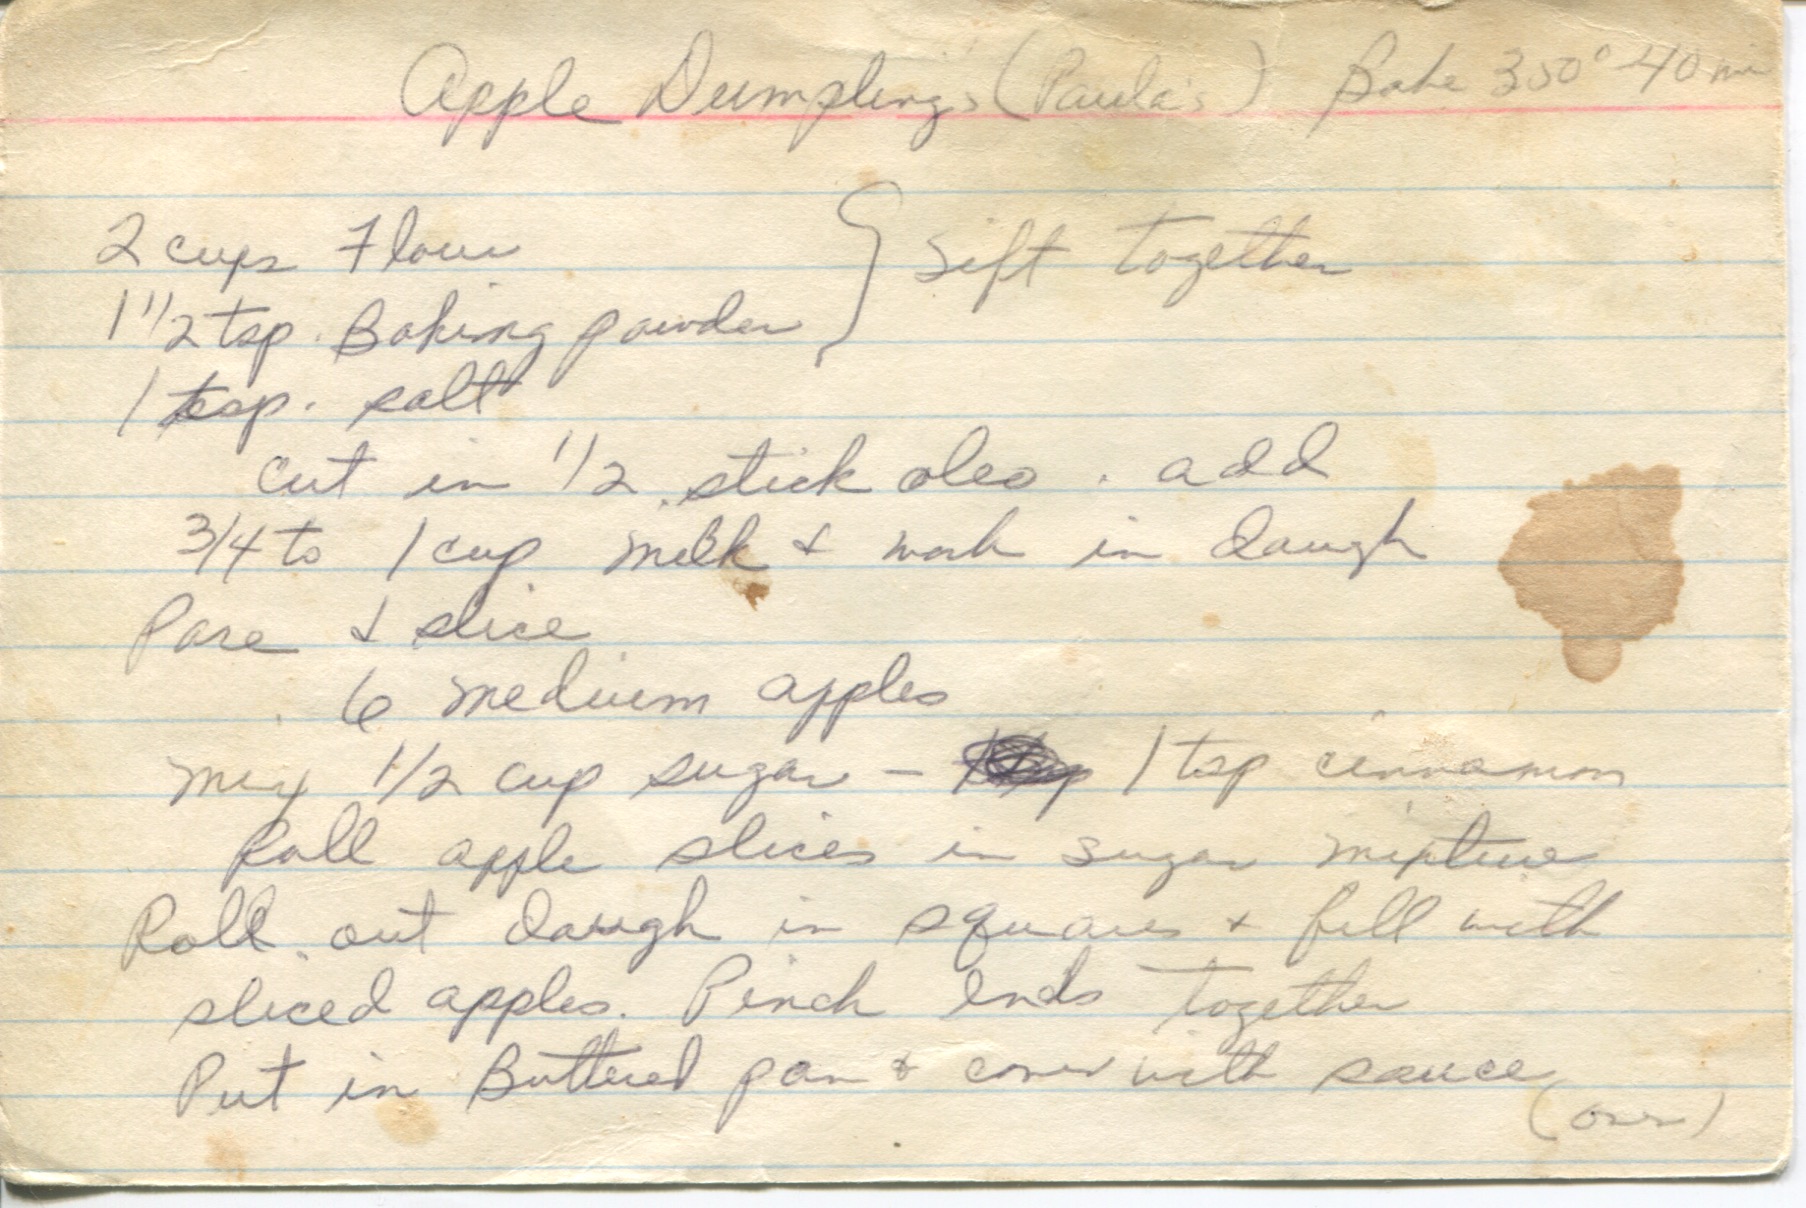 Apple Dumplings (Paula's) Bake 350° 40 min
2 cups Flour } Sift together
1 1/2 tsp. Baking powder
1 tsp. salt
cut in 1/2 stick oleo. add
3/4 to 1 cup milk & work in dough
Pare & slice
6 medium apples
mix 1/2 cup sugar – 1 tsp cinnamon
Roll apple slices in sugar mixture
Roll out dough in squares & fill with
sliced apples. Pinch ends together
Put in Buttered pan & cover with sauce
(over)